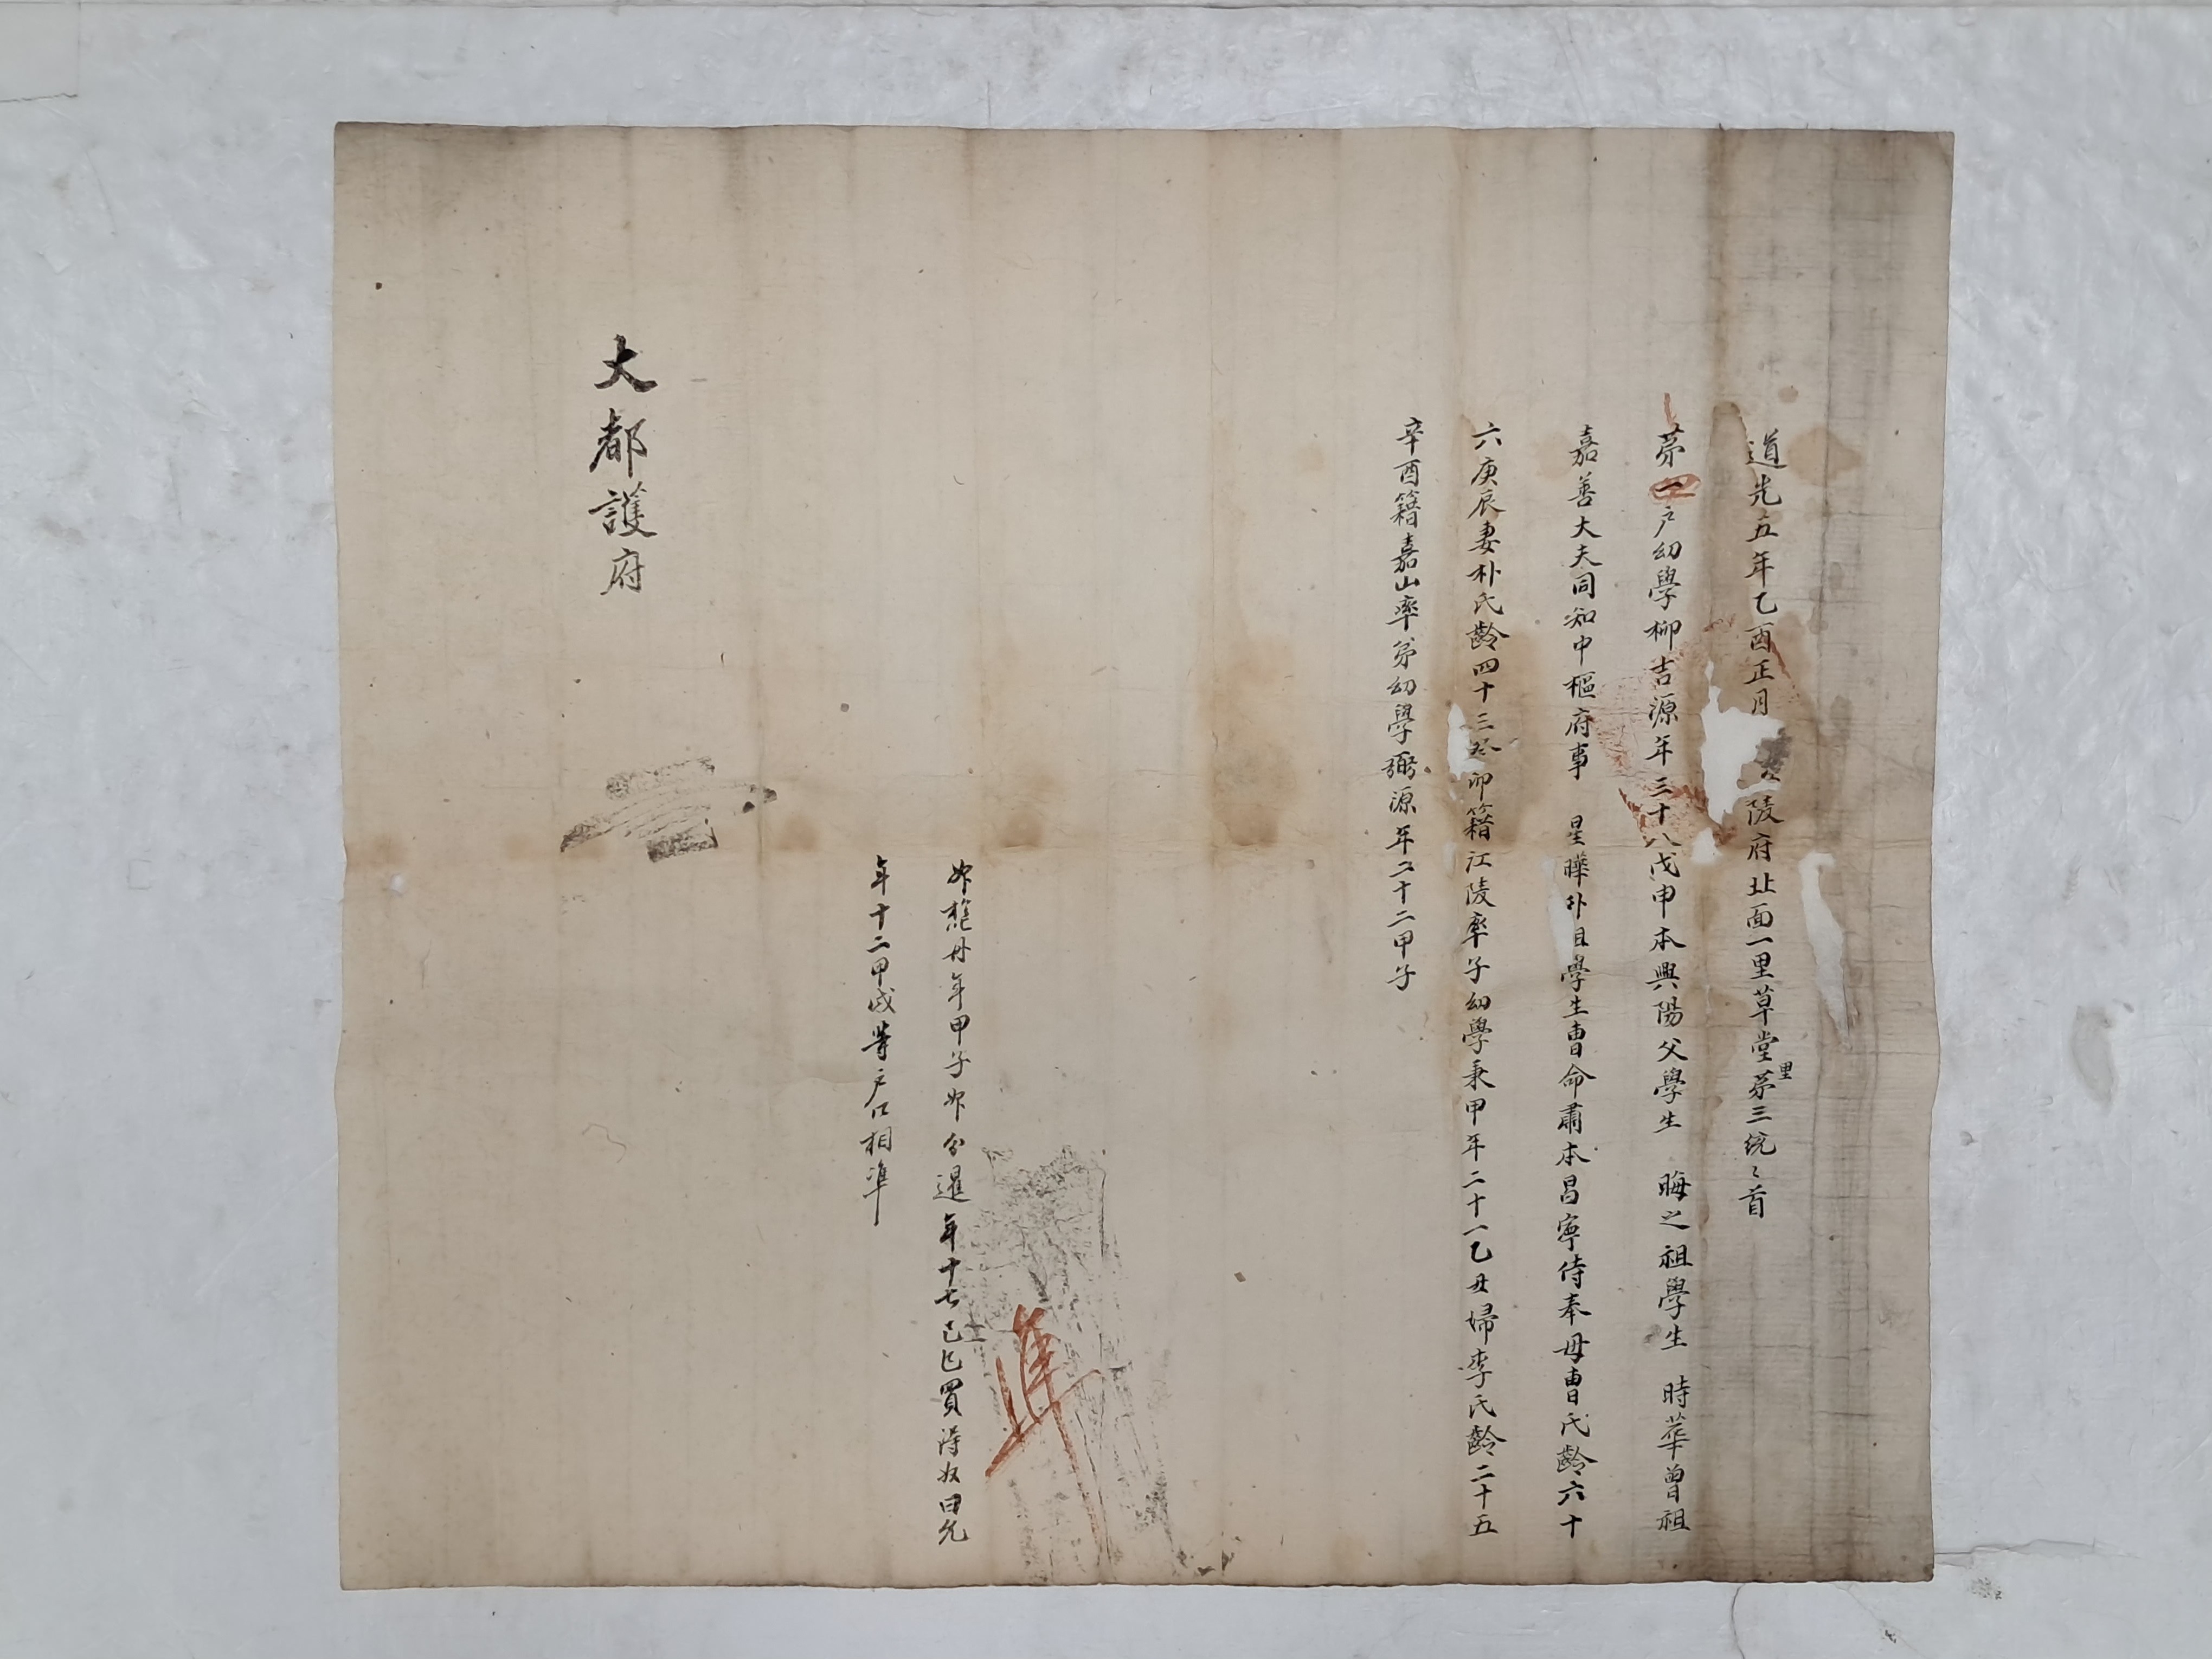 道光五年乙酉正月 陵府北面一里草堂里苐三統々首
苐一戶幼學柳吉源年三十八戊申本興陽父學生 晦之祖學生 時華曾祖
嘉善大夫同知中樞府事 星曄外 學生曺命肅本昌寧侍奉母曺氏齡六十
六庚辰妻朴氏齡四十三 卯籍江陵率子幼學秉甲年二十一乙丑婦李氏齡二十五
辛酉籍嘉山率弟幼學弼源年二十二甲子
婢 丹年甲子婢分暹年十七己巳買得奴曰
年十二甲戌等戶口相準
準
大都護府